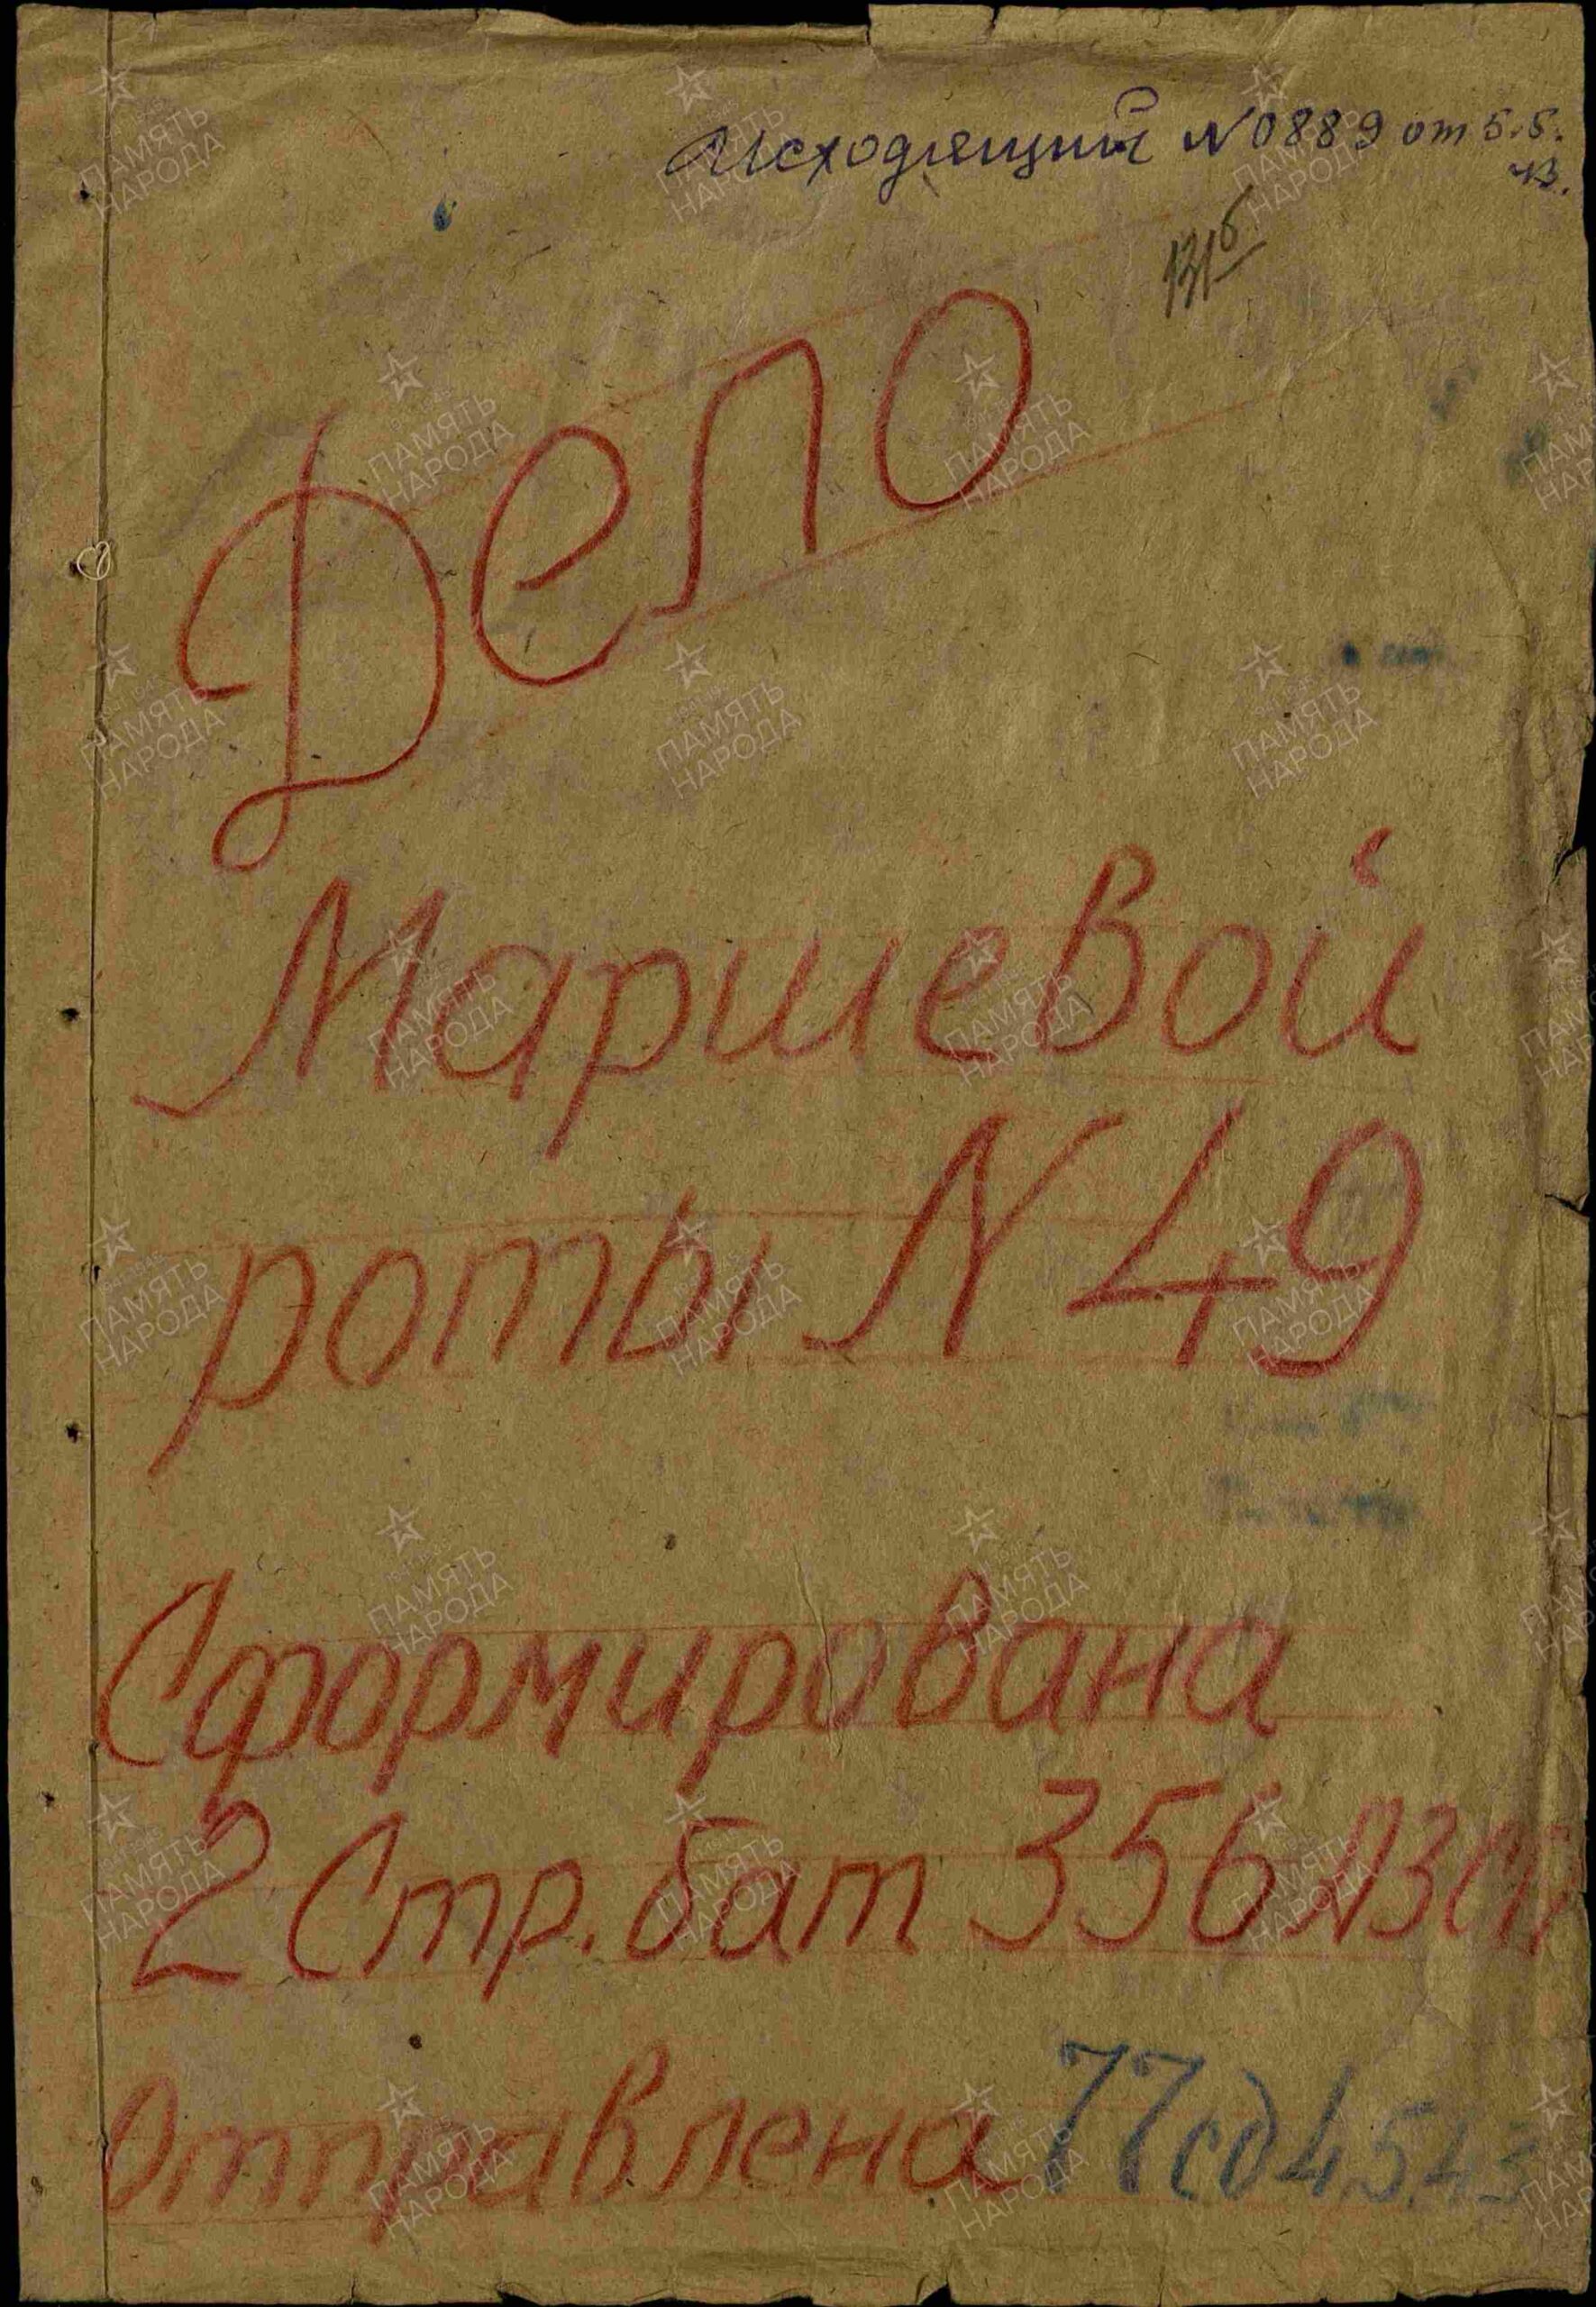 Исходящий N 0889 от 5.5.
43.
Дело
Маршевой
роты N 49
Сформирована
2 Стр. бат 356 АЗСП
Отправлена 77 сд 4.5.43
ПАМЯТЬ
НАРОДА